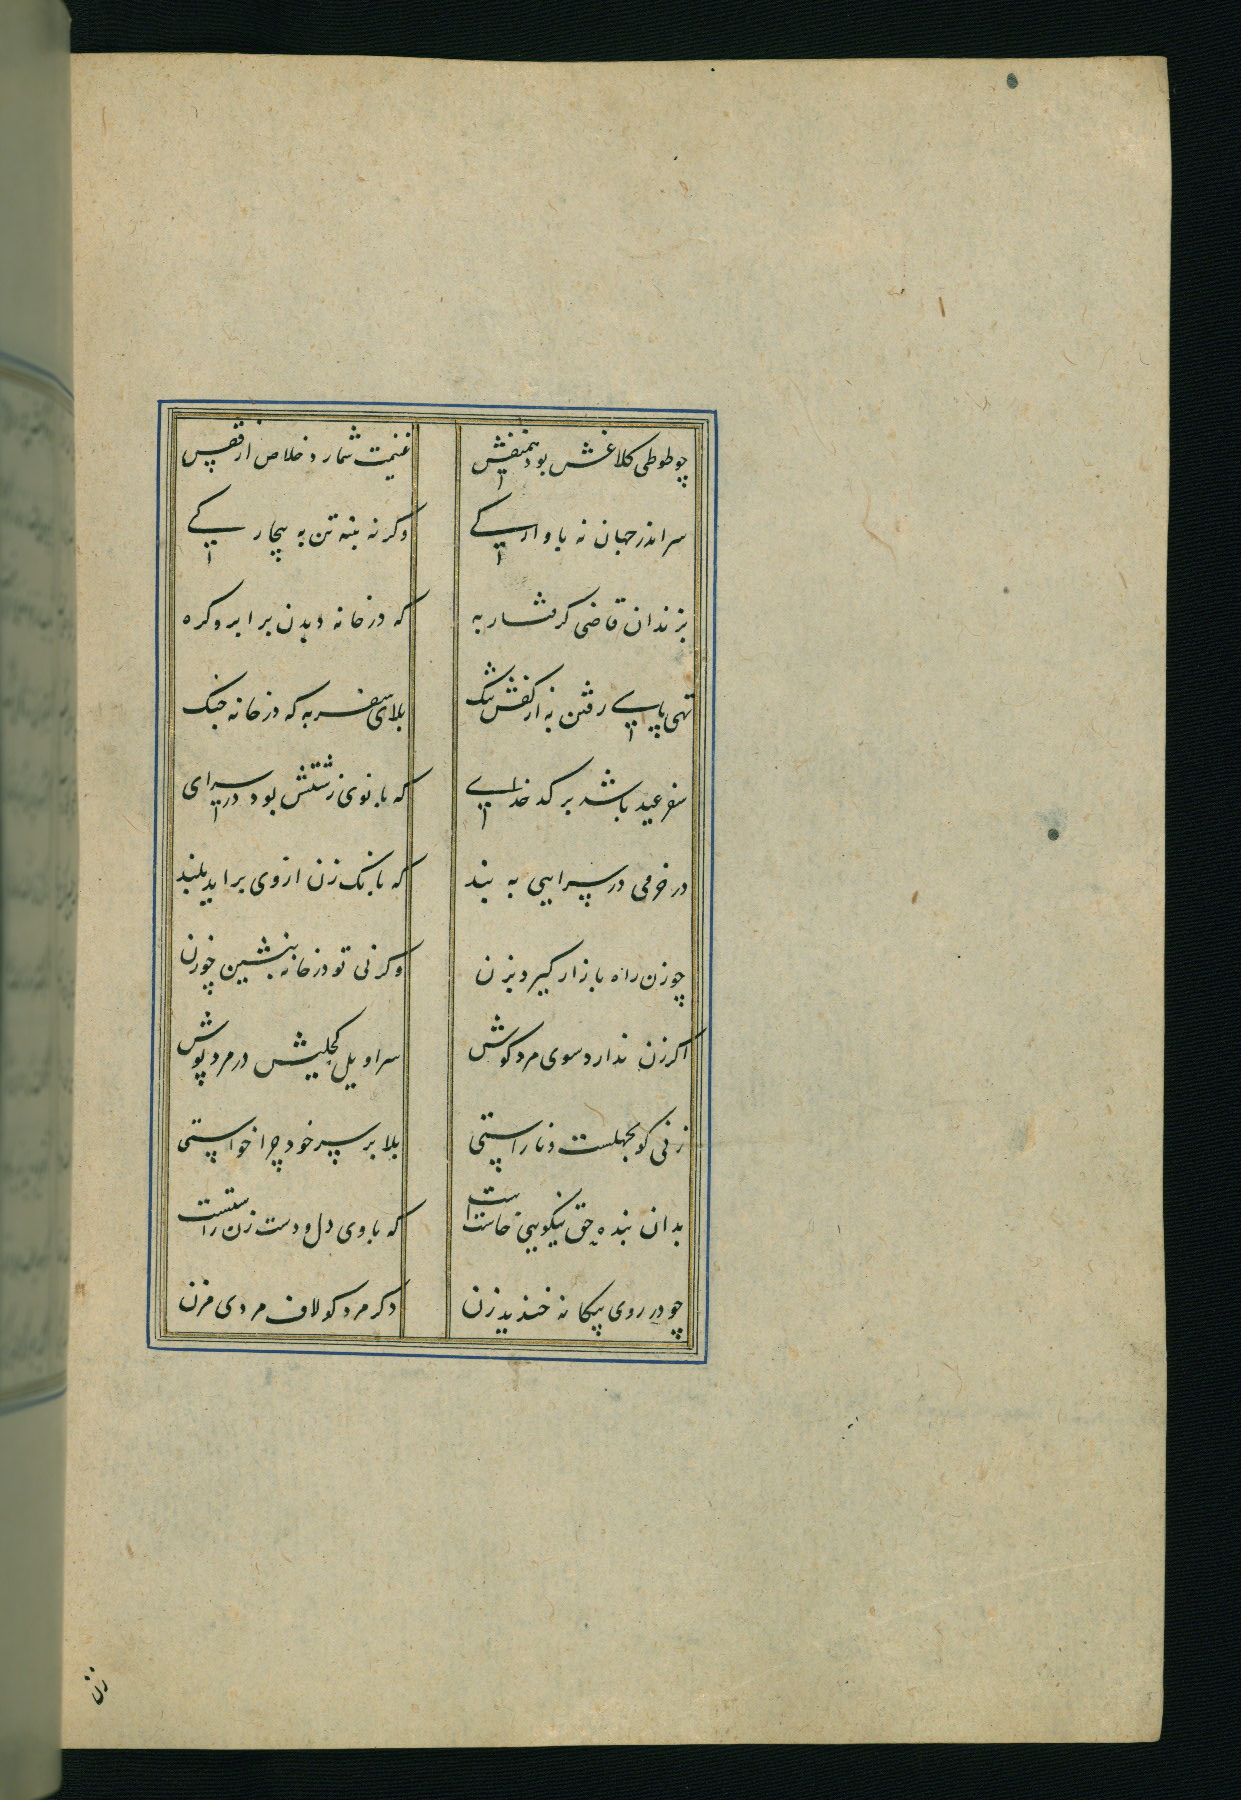 چو طوطی کلاغش بود همنفس غنیمت شمارد خلاص از قفس
سر اندر جهان نه باوارکی وکرنه بنه تن به بیچارکی
بزندان قاضی کرفتار به که در خانه دیدن بر ابرو کره
تهی پای رفتن به از کفش تنک بلای سفر به که در خانه جنک
سفر عید باشد بر کدخدای که بانوی زشتش بود در سرای
در خرمی در سرایی به بند که بانک زن از وی برآید بلند
چو زن راه بازار کیرد بزن وکرنی تو در خانه بنشین چو زن
اکر زن ندارد سوی مرد کوش سراویل کحلیش در مرد پوش
زنی کو بجهلست و ناراستی بلا بر سر خود چرا خواستی
بدان بنده حق نیکویی خاستست که با وی دل و دست زن راستست
چو در روی بیکانه خندید زن دکر مرد کو لاف مردی مزن
زن